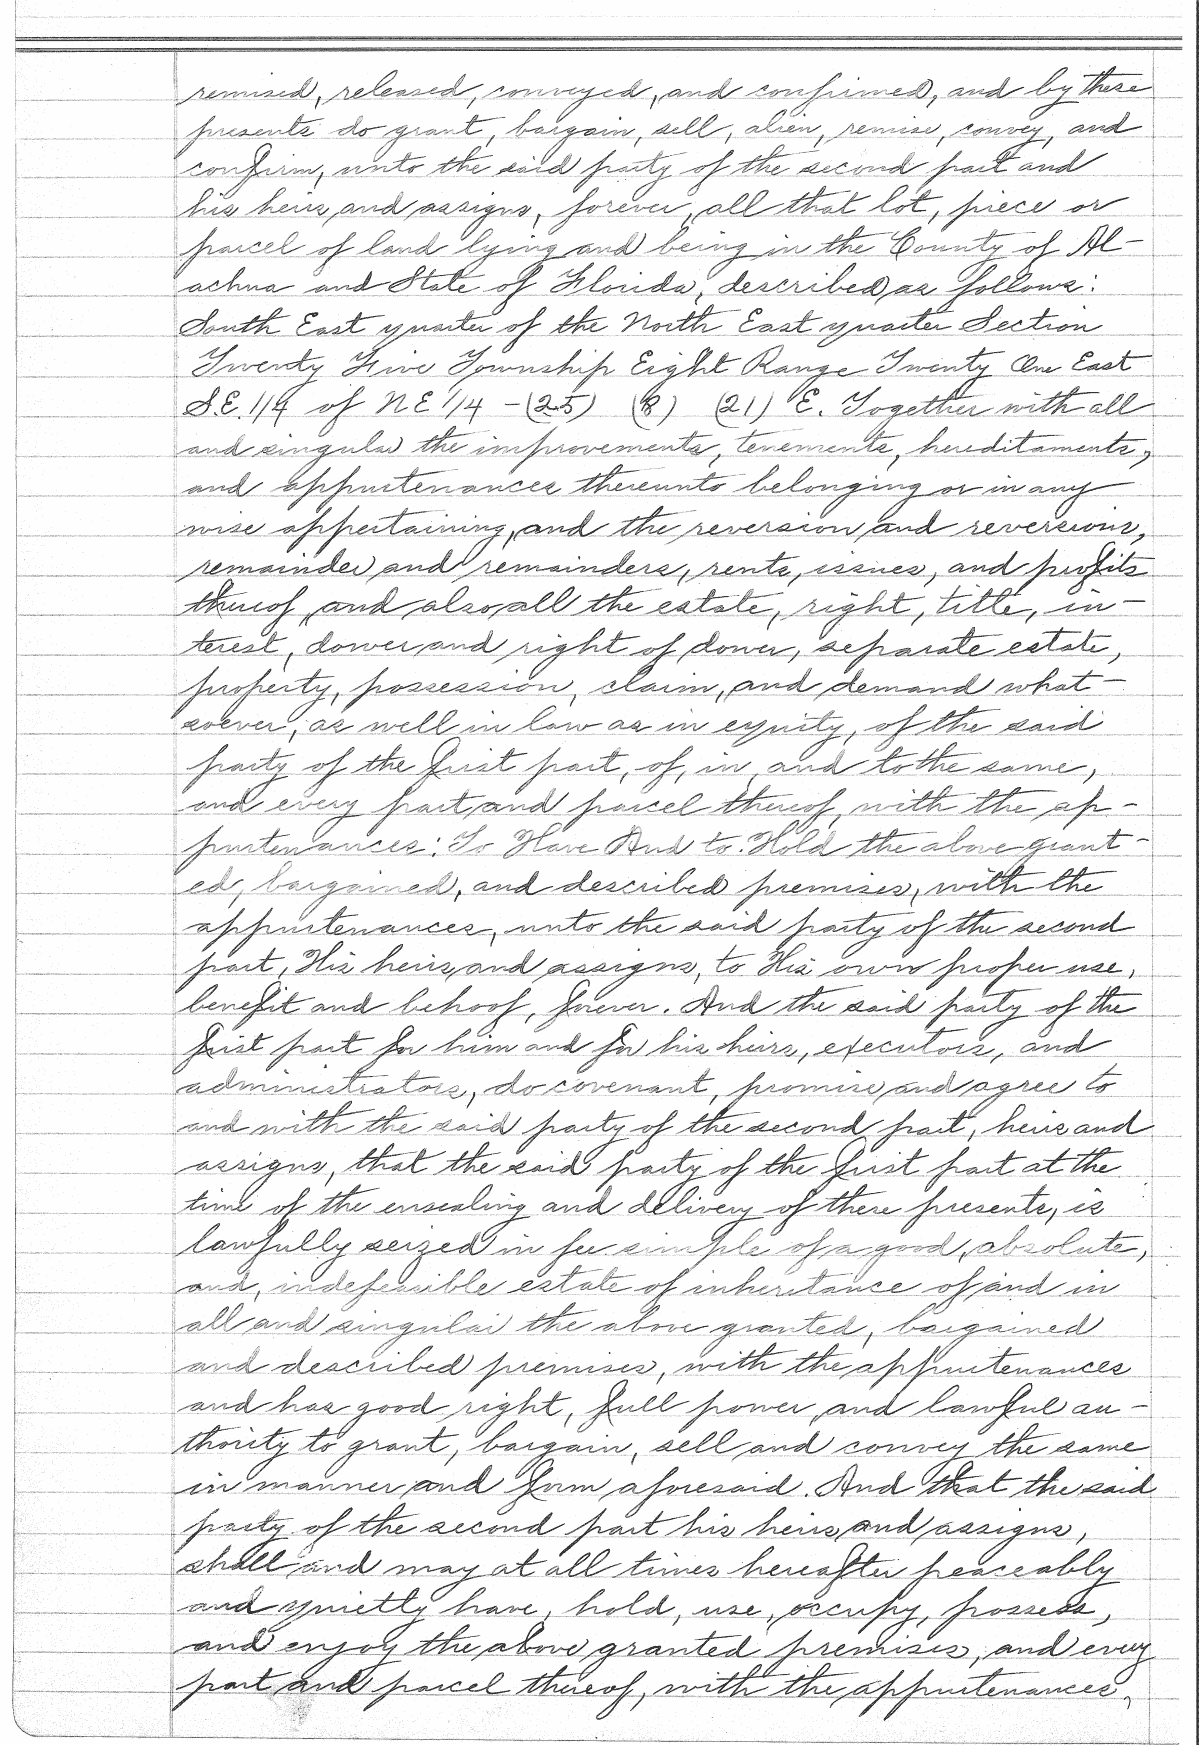 remised, released, conveyed, and confirmed, and by these
presents do grant, bargain, sell, alien, remise, convey, and
confirm, unto the said party of the second part and
his heirs and assigns, forever, all that lot, piece or
parcel of land lying and being in the County of Al-
achua and State of Florida, described as follows:
South East quarter of the North East quarter Section
Twenty Five Township Eight Range Twenty One East
S.E. 1/4 of N E 1/4 - (25) (8) (21) E. Together with all
and singular the improvements, tenements, hereditaments,
and appurtenances thereunto belonging or in any
wise appertaining, and the reversion and reversions,
remainder and remainders, rents, issues, and profits
thereof, and also all the estate, right, title, in-
terest, dower and right of dower, separate estate,
property, possession, claim, and demand what-
soever, as well in law as in equity, of the said
party of the first part, of, in, and to the same,
and every part and parcel thereof, with the ap-
purtenances: To Have And to Hold the above grant-
ed, bargained, and described premises, with the
appurtenances, unto the said party of the second
part, His heirs and assigns, to His own proper use,
benefit and behoof, forever. And the said party of the
first part for him and for his heirs, executors, and
administrators, do covenant, promise and agree to
and with the said party of the second part, heirs and
assigns, that the said party of the first part at the
time of the ensealing and delivery of these presents, is
lawfully seized in fee simple of a good, absolute,
and, indefeasible estate of inheritance of and in
all and singular the above granted, bargained
and described premises, with the appurtenances
and has good right, full power, and lawful au-
thority to grant, bargain, sell and convey the same
in manner and form aforesaid. And that the said
party of the second part his heirs and assigns,
shall and may at all times hereafter peaceably
and quietly have, hold, use, occupy, possess,
and enjoy the above granted premises, and every
part and parcel thereof, with the appurtenances,